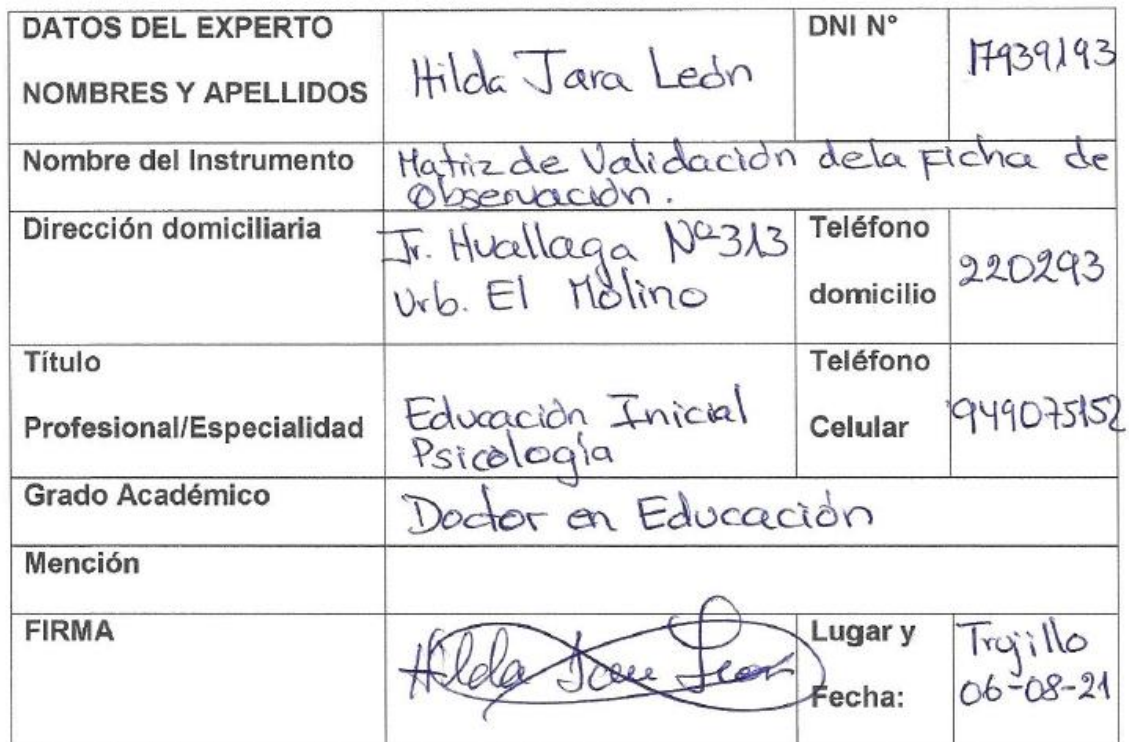 DATOS DEL EXPERTO
NOMBRES Y APELLIDOS
Hilda Jara León
DNI N°
17939193
Nombre del Instrumento
Matriz de Validación dela Ficha de
Observación.
Dirección domiciliaria
Jr. Huallaga Nº 313
Urb. El Molino
Teléfono
domicilio
220293
Título
Profesional/Especialidad
Educación Inicial
Psicología
Teléfono
Celular
949075152
Grado Académico
Doctor en Educación
Mención
FIRMA
Hilda Jara León
Lugar y
Fecha:
Trujillo
06-08-21